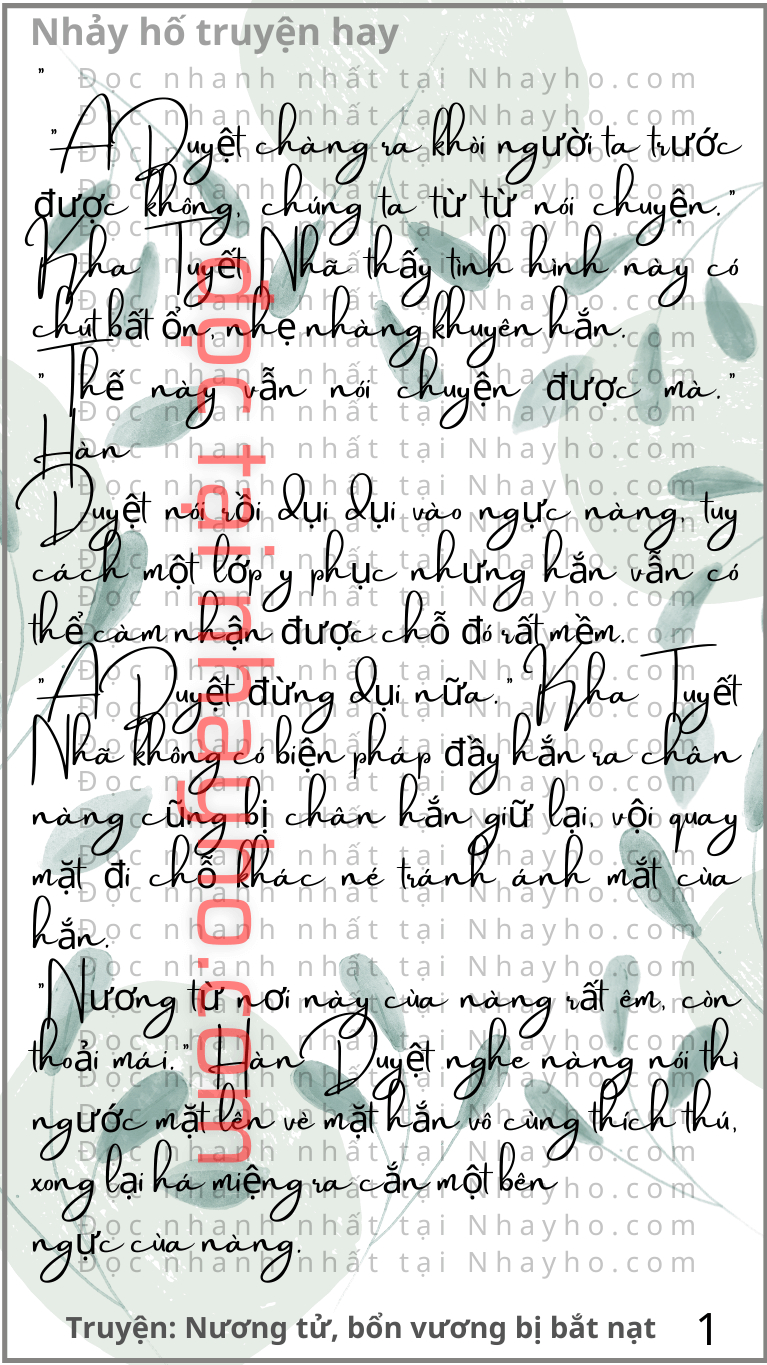 Nhảy hố truyện hay
"
"A Duyệt chàng ra khỏi người ta trước
được không, chúng ta từ từ nói chuyện."
Kha Tuyết Nhã thấy tình hình này có
chút bất ổn, nhẹ nhàng khuyên hắn.
"Thế này vẫn nói chuyện được mà."
Hàn
Duyệt nói rồi dụi dụi vào ngực nàng, tuy
cách một lớp y phục nhưng hắn vẫn có
thể cảm nhận được chỗ đó rất mềm.
"A Duyệt đừng dụi nữa." Kha Tuyết
Nhã không có biện pháp đẩy hắn ra chân
nàng cũng bị chân hắn giữ lại, vội quay
mặt đi chỗ khác né tránh ánh mắt của
hắn.
"Nương tử nơi này của nàng rất êm, còn
thoải mái." Hàn Duyệt nghe nàng nói thì
ngước mặt lên vẻ mặt hắn vô cùng thích thú,
xong lại há miệng ra cắn một bên
ngực của nàng.
đọc tại nhayho.com
Đọc nhanh nhất tại Nhayho.com
Truyện: Nương tử, bổn vương bị bắt nạt
1